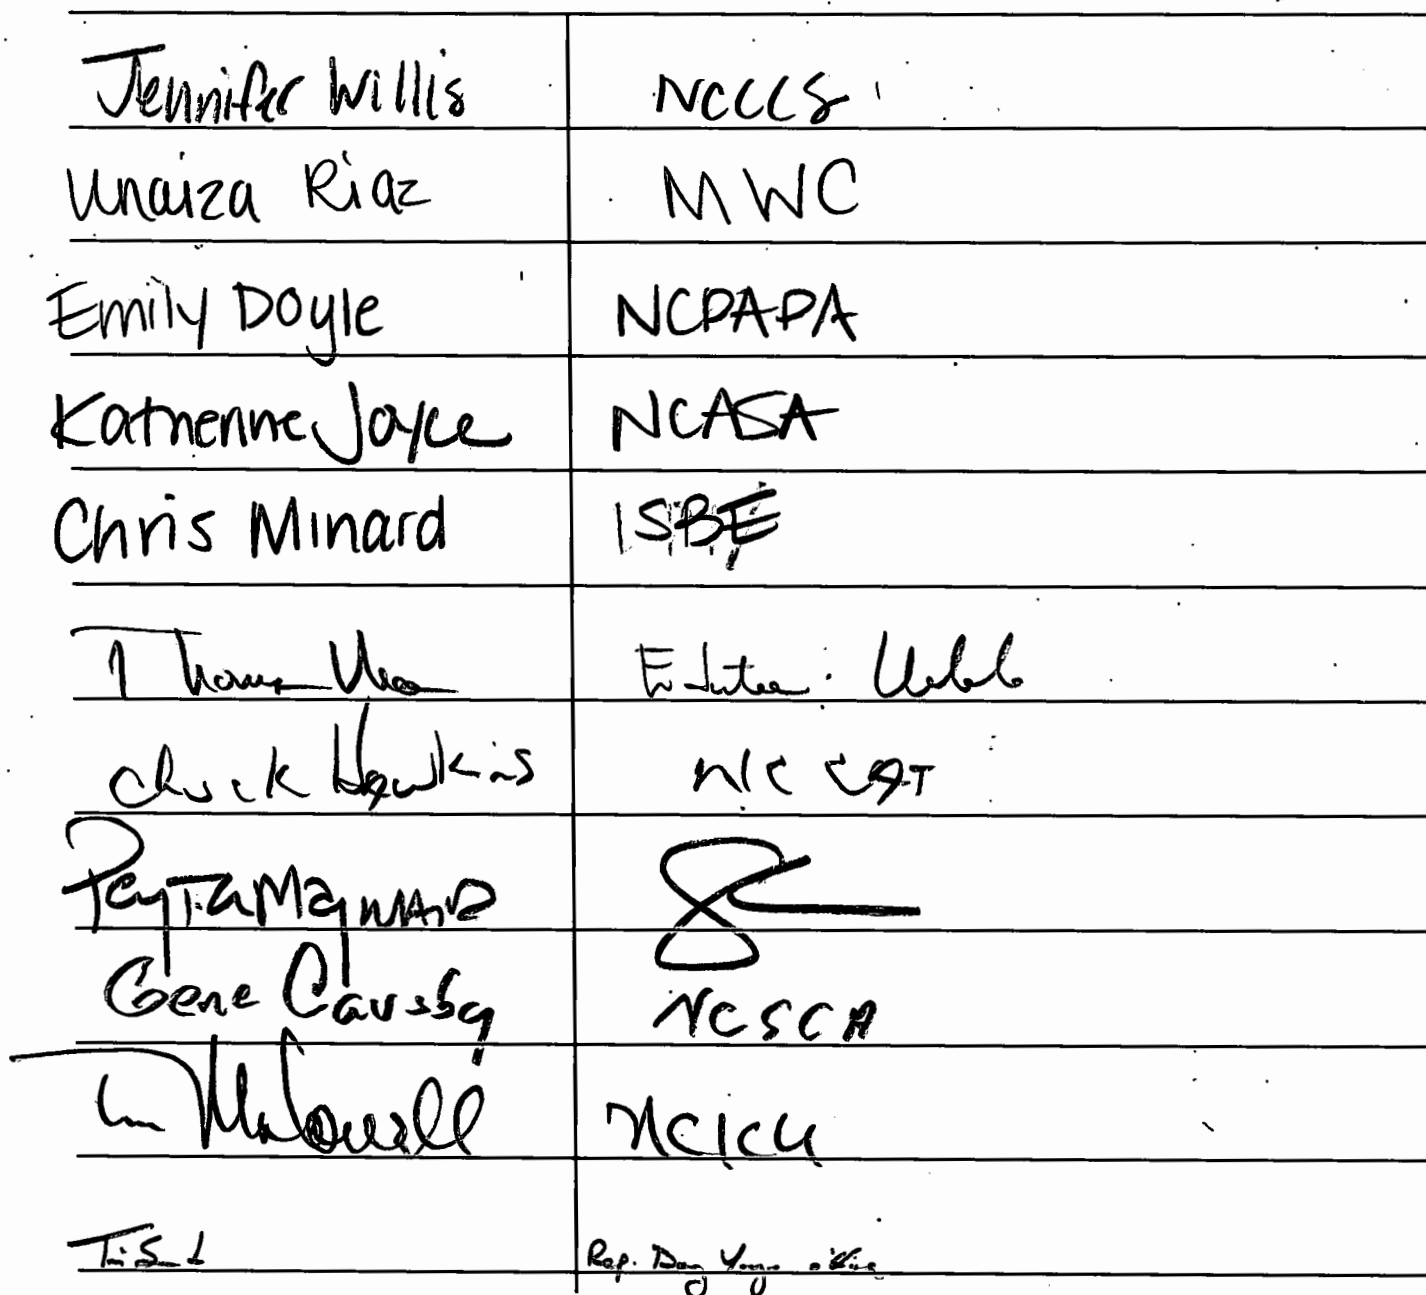 Jennifer Willis NCCCS
Unaiza Riaz MWC
Emily Doyle NCPAPA
Katherine Joyce NCASA
Chris Minard ISBE
Chuck Hawkins NC CAT
Peyton Maynard
Gene Causby NCSCA
McDowell NCICU
Rep.